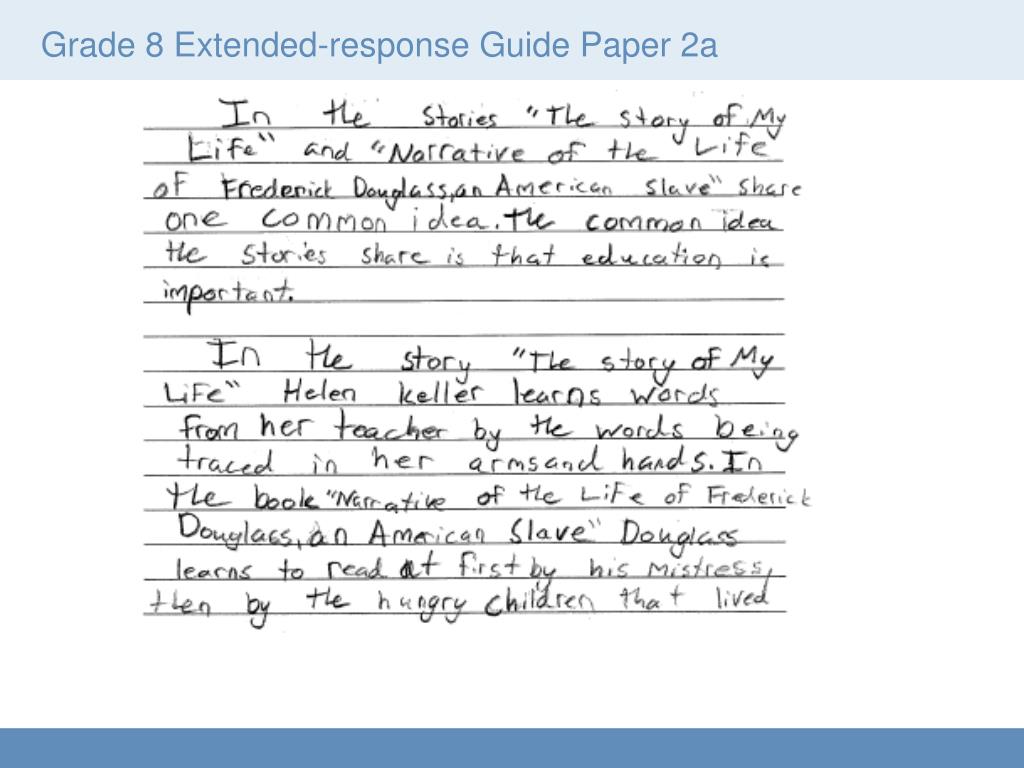 Grade 8 Extended-response Guide Paper 2a
In the Stories "The story of My
Life" and "Narrative of the Life
of Frederick Douglass,an American slave" share
one common idea. the common idea
the stories share is that education is
important.
In the story "The story of My
Life" Helen keller learns words
from her teacher by the words being
traced in her armsand hands. In
the book "Narrative of the Life of Frederick
Douglass,an American Slave" Douglass
learns to read at first by his Mistress,
then by the hungry children that lived